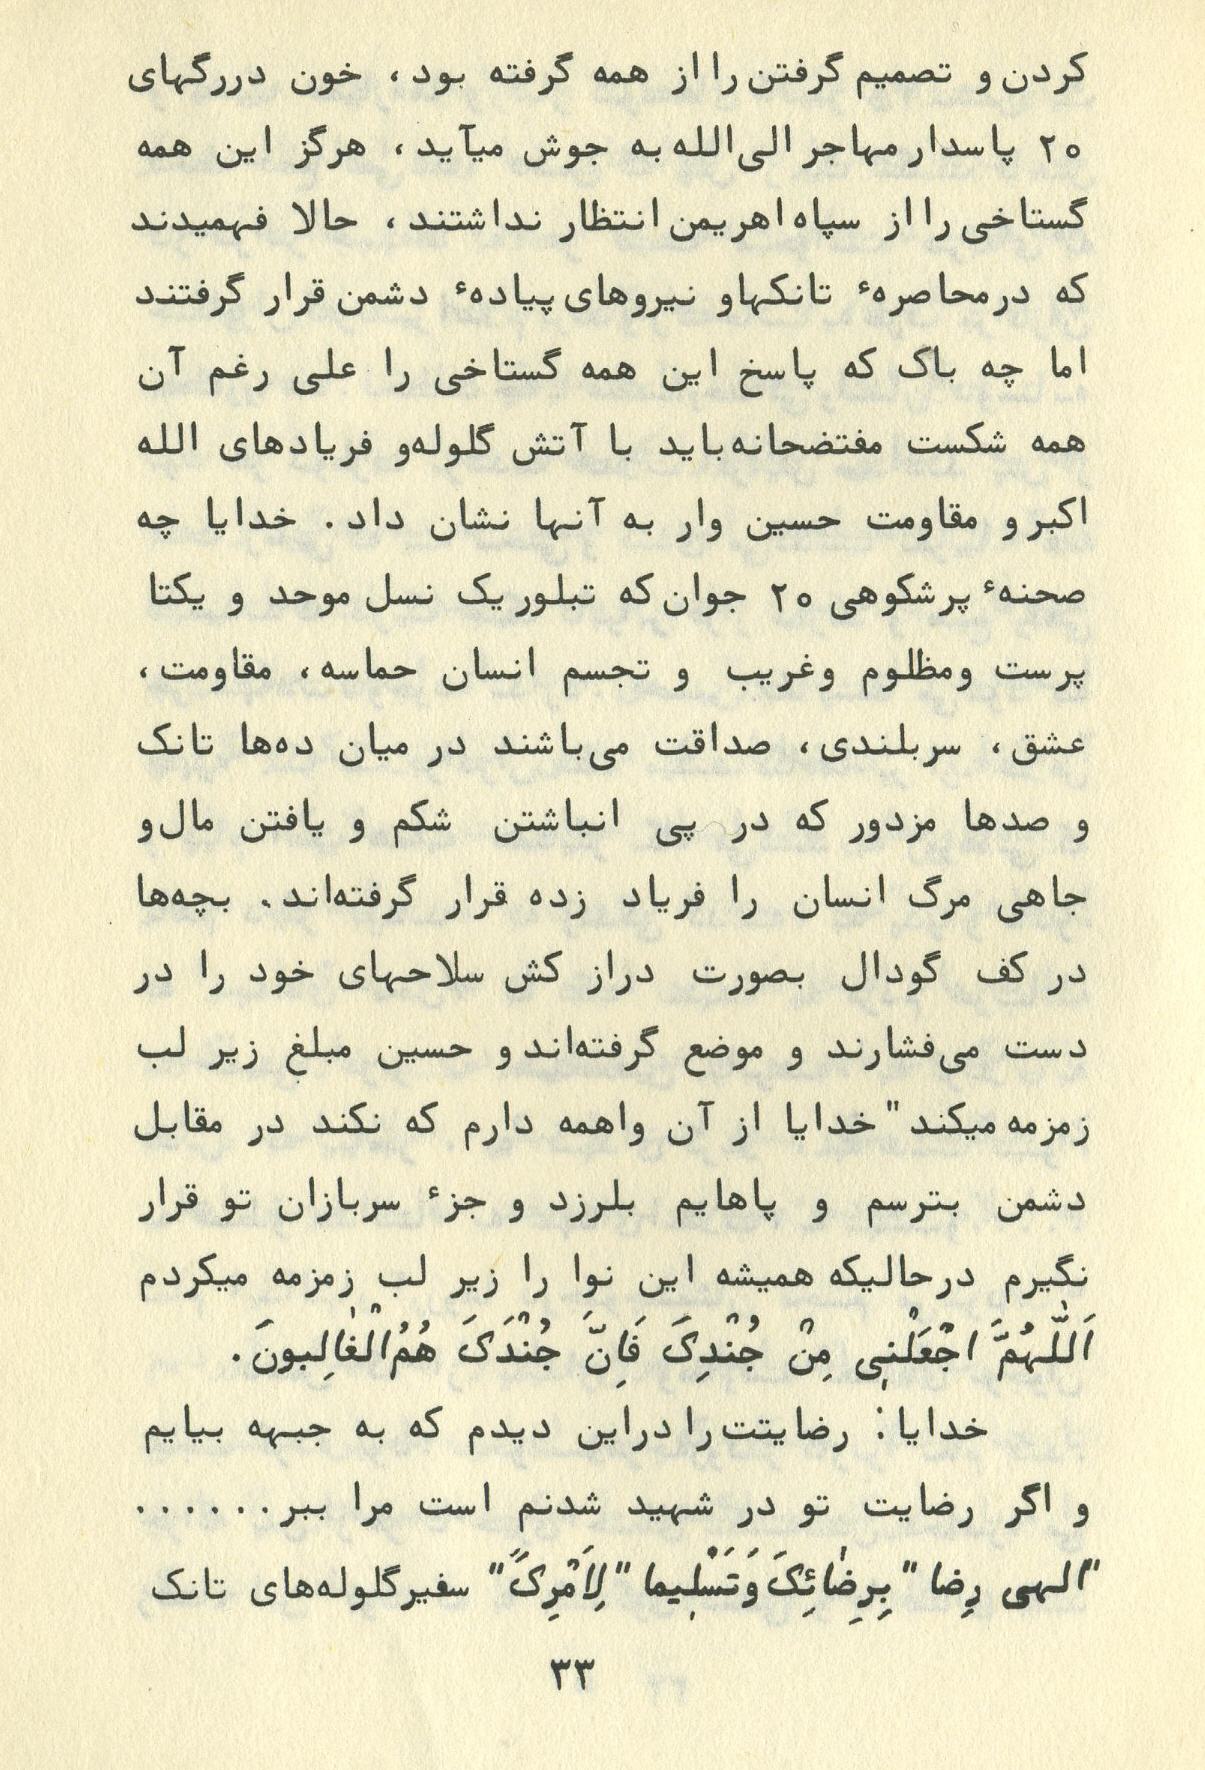 کردن و تصمیم گرفتن را از همه گرفته بود، خون دررگهای
۲۰ پاسدار مهاجر الی‌الله به جوش میآید، هرگز این همه
گستاخی را از سپاه اهریمن انتظار نداشتند، حالا فهمیدند
که درمحاصرهٔ تانکهاو نیروهای پیادهٔ دشمن قرار گرفتند
اما چه باک که پاسخ این همه گستاخی را علی رغم آن
همه شکست مفتضحانه باید با آتش گلوله‌و فریادهای الله
اکبر و مقاومت حسین وار به آنها نشان داد. خدایا چه
صحنهٔ پرشکوهی ۲۰ جوان که تبلور یک نسل موحد و یکتا
پرست ومظلوم وغریب و تجسم انسان حماسه، مقاومت،
عشق، سربلندی، صداقت می‌باشند در میان ده‌ها تانک
و صدها مزدور که در پی انباشتن شکم و یافتن مال‌و
جاهی مرگ انسان را فریاد زده قرار گرفته‌اند. بچه‌ها
در کف گودال بصورت دراز کش سلاحهای خود را در
دست می‌فشارند و موضع گرفته‌اند و حسین مبلغ زیر لب
زمزمه میکند "خدایا از آن واهمه دارم که نکند در مقابل
دشمن بترسم و پاهایم بلرزد و جزء سربازان تو قرار
نگیرم درحالیکه همیشه این نوا را زیر لب زمزمه میکردم
اَللّٰهُمَّ اجْعَلْنِی مِنْ جُنْدِکَ فَاِنَّ جُنْدَکَ هُمُ الْغٰالِبونَ.
خدایا: رضایتت را دراین دیدم که به جبهه بیایم
و اگر رضایت تو در شهید شدنم است مرا ببر......
"الهی رِضا" بِرِضٰائِکَ وَتَسْلِیما" لِاَمْرِکَ" سفیرگلوله‌های تانک
۳۳